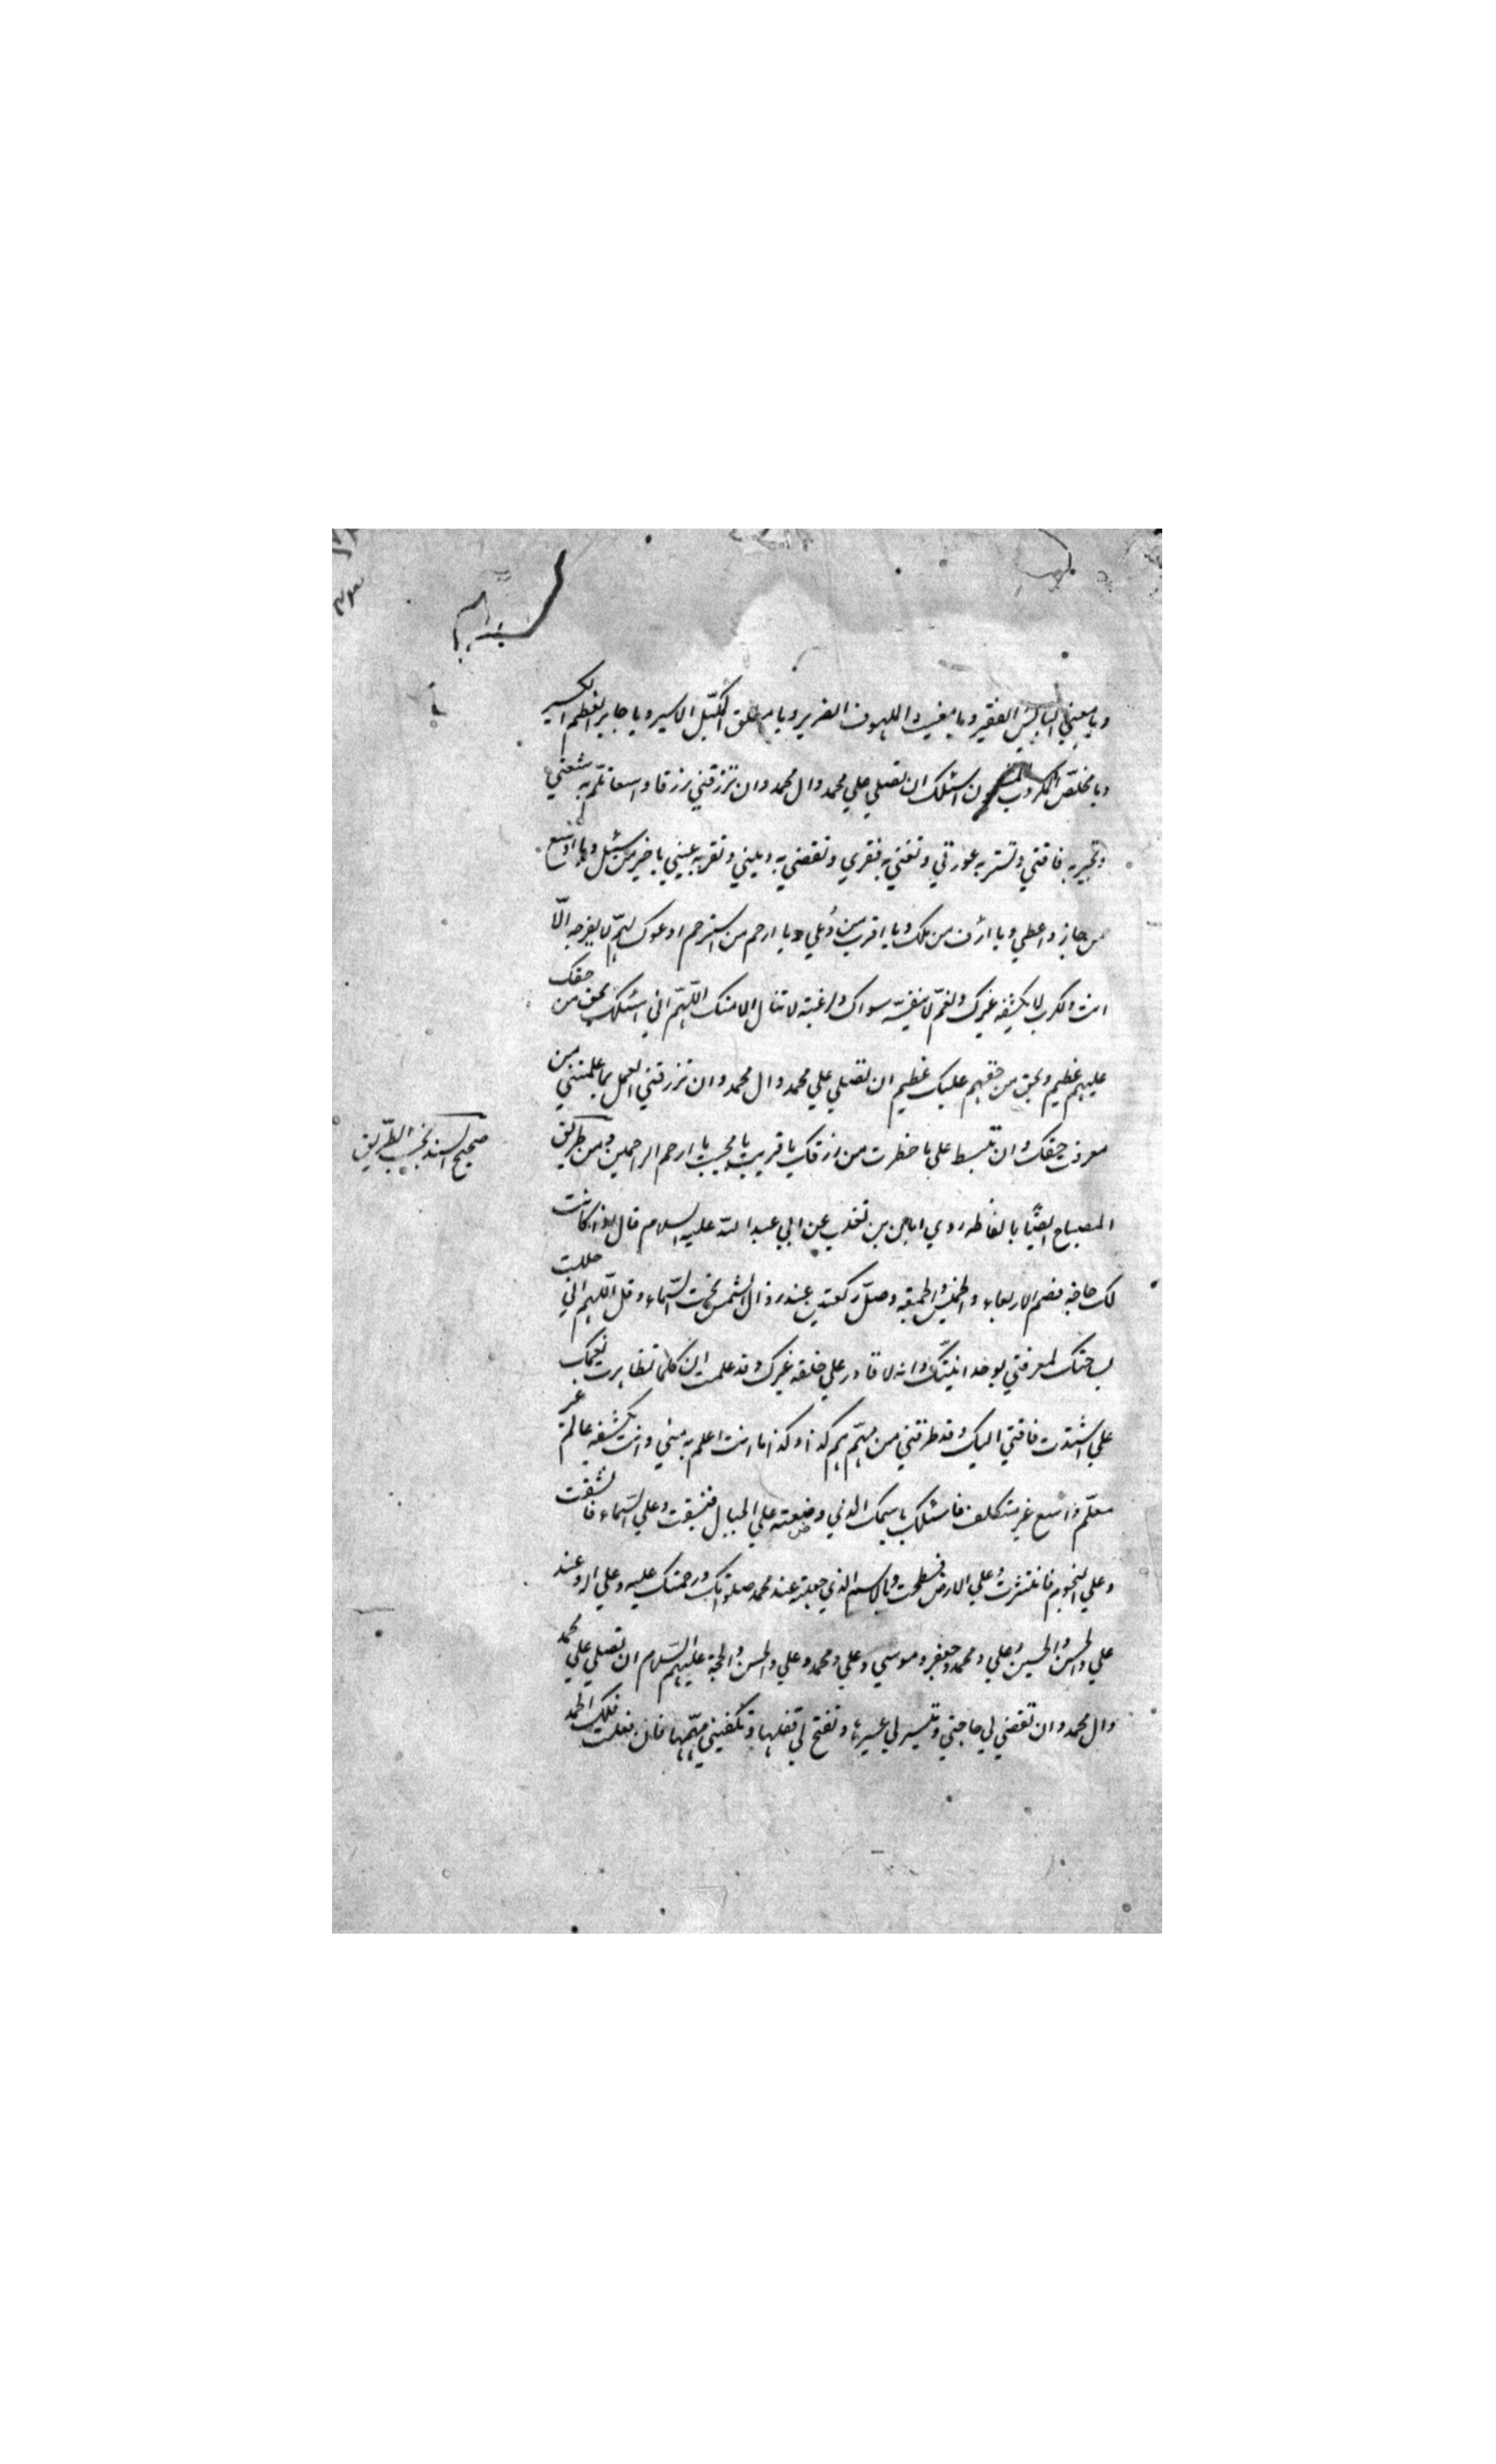 ويا معين البايس الفقير ويا مغيث الملهوف الضرير ويا مطلق المكبّل الاسير ويا جابر العظم الكسير
ويا مخلّص المكروب اسئلك ان تصلي علي محمد وال محمد وان ترزقني رزقا واسعا تلمّ به شعثي
وتجبر به فاقتي وتستر به عورتي وتغني به فقري وتقضي به ديني وتقر به عيني يا خير من سئل ويا اوسع
من جاد واعطي ويا ارئف من ملك ويا اقرب من دُعي ويا ارحم من استرحم ادعوك لهمّ لا يفرجه الّا
انت ولكرب لا يكشفه غيرك ولغمّ لا ينفّسه سواك ولرغبة لا تنال الا منك اللّهمّ اني اسئلك بحق من حقك
عليهم عظيم وبحق من حقهم عليك عظيم ان تصلي علي محمد وال محمد وان ترزقني العمل بما علمتني من
معرفة حقك وان تبسط علي ما حظرت من رزقك يا قريب يا مجيب يا ارحم الراحمين ومن طريق
صحيح السند نجيب الطّريق
المصباح ايضًا بالفاظه روي ابان بن تغلب عن ابي عبد الله عليه السلام قال اذا كانت
لك حاجة فصم الاربعاء والخميس والجمعة وصلّ ركعتين عند زوال الشمس تحت السّماء وقل اللّهم اني حللت
بساحتك لمعرفتي بوحدانيتك وانه لا قادر علي خلقه غيرك وقد علمت ان كلما تظاهرت نعمك
علي اشتدت فاقتي اليك وقد طرقتني من مهمّ همّ كذا وكذا ما انت اعلم به مني وانت بكشفه عالم غير
معلّم واسع غير متكلف فاسئلك باسمك الذي وضعته علي الجبال فنسفت وعلي السّماء فانشقت
وعلي النجوم فانتثرت وعلي الارض فسطحت وبالاسم الذي جعلته عند محمد صلواتك ورحمتك عليه وعلي اله وعند
علي والحسن والحسين وعلي ومحمد وجعفر وموسي وعلي ومحمد وعلي والحسن والحجة عليهم السّلام ان تصلي علي محمد
وال محمد وان تقضي لي حاجتي وتيسر لي عسيرها وتفتح لي قفلها وتكفيني مهمّها فان فعلت فلك الحمد